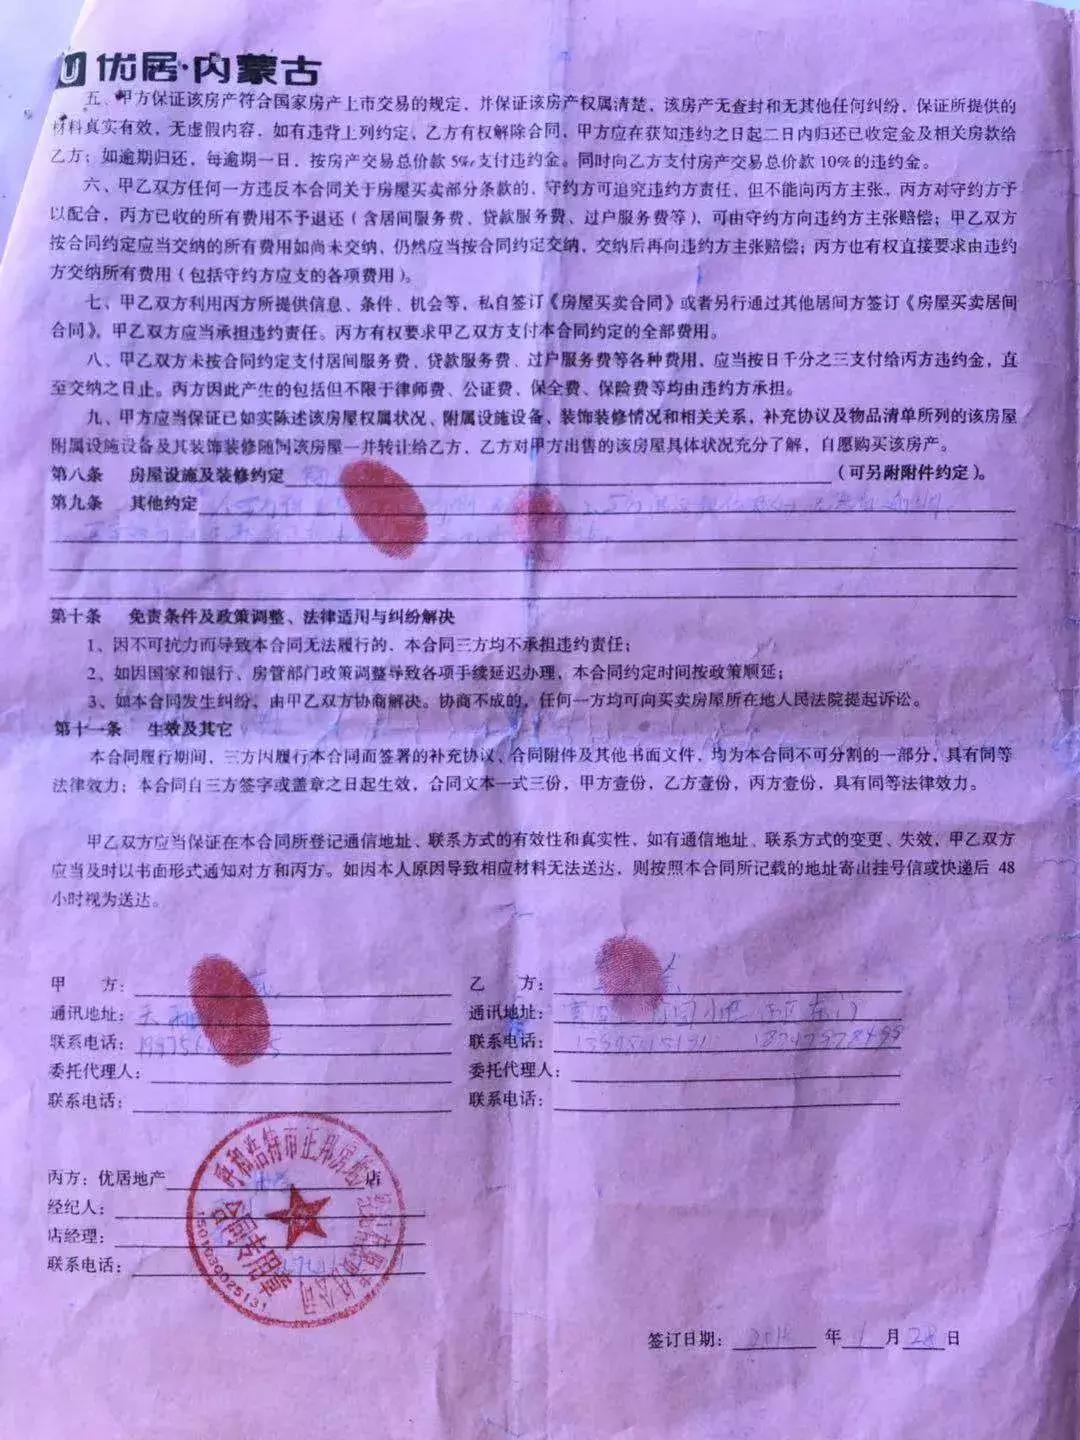 优居·内蒙古
五、甲方保证该房产符合国家房产上市交易的规定，并保证该房产权属清楚，该房产无查封和无其他任何纠纷，保证所提供的
材料真实有效，无虚假内容，如有违背上列约定，乙方有权解除合同，甲方应在获知违约之日起二日内归还已收定金及相关房款给
乙方；如逾期归还，每逾期一日，按房产交易总价款 5‰支付违约金。同时向乙方支付房产交易总价款 10%的违约金。
六、甲乙双方任何一方违反本合同关于房屋买卖部分条款的，守约方可追究违约方责任，但不能向丙方主张，丙方对守约方予
以配合，丙方已收的所有费用不予退还（含居间服务费、贷款服务费、过户服务费等），可由守约方向违约方主张赔偿；甲乙双方
按合同约定应当交纳的所有费用如尚未交纳，仍然应当按合同约定交纳，交纳后再向违约方主张赔偿；丙方也有权直接要求由违约
方交纳所有费用（包括守约方应支的各项费用）。
七、甲乙双方利用丙方所提供信息、条件、机会等，私自签订《房屋买卖合同》或者另行通过其他居间方签订《房屋买卖居间
合同》，甲乙双方应当承担违约责任。丙方有权要求甲乙双方支付本合同约定的全部费用。
八、甲乙双方未按合同约定支付居间服务费、贷款服务费、过户服务费等各种费用，应当按日千分之三支付给丙方违约金，直
至交纳之日止。丙方因此产生的包括但不限于律师费、公证费、保全费、保险费等均由违约方承担。
九、甲方应当保证已如实陈述该房屋权属状况、附属设施设备、装饰装修情况和相关关系，补充协议及物品清单所列的该房屋
附属设施设备及其装饰装修随同该房屋一并转让给乙方，乙方对甲方出售的该房屋具体状况充分了解，自愿购买该房产。
第八条 房屋设施及装修约定（可另附附件约定）。
第九条 其他约定
第十条 免责条件及政策调整、法律适用与纠纷解决
1、因不可抗力而导致本合同无法履行的，本合同三方均不承担违约责任；
2、如因国家和银行、房管部门政策调整导致各项手续延迟办理，本合同约定时间按政策顺延；
3、如本合同发生纠纷，由甲乙双方协商解决。协商不成的，任何一方均可向买卖房屋所在地人民法院提起诉讼。
第十一条 生效及其它
本合同履行期间，三方因履行本合同而签署的补充协议、合同附件及其他书面文件，均为本合同不可分割的一部分，具有同等
法律效力；本合同自三方签字或盖章之日起生效，合同文本一式三份，甲方壹份，乙方壹份，丙方壹份，具有同等法律效力。
甲乙双方应当保证在本合同所登记通信地址、联系方式的有效性和真实性，如有通信地址、联系方式的变更、失效，甲乙双方
应当及时以书面形式通知对方和丙方。如因本人原因导致相应材料无法送达，则按照本合同所记载的地址寄出挂号信或快递后 48
小时视为送达。
甲 方： 乙 方：
通讯地址： 通讯地址：
联系电话： 联系电话：
委托代理人： 委托代理人：
联系电话： 联系电话：
丙方：优居地产 店
经纪人：
店经理：
联系电话：
合同专用章
1501030025131
签订日期： 年 月 28 日